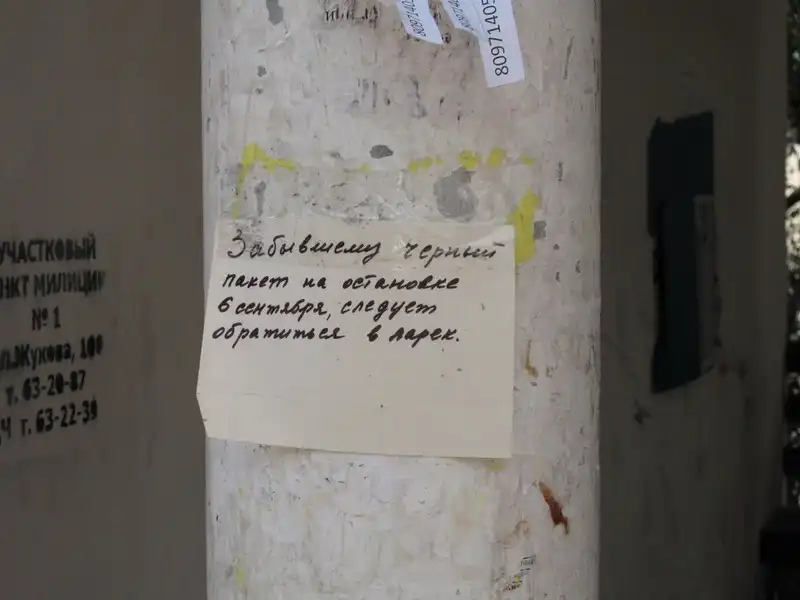 8097140
УЧАСТКОВЫЙ
НКТ МИЛИЦИИ
№ 1
Л.Жукова, 100
т. 63-20-87
Ч г. 63-22-39
Забывшему черный
пакет на остановке
6 сентября, следует
обратиться в ларек.